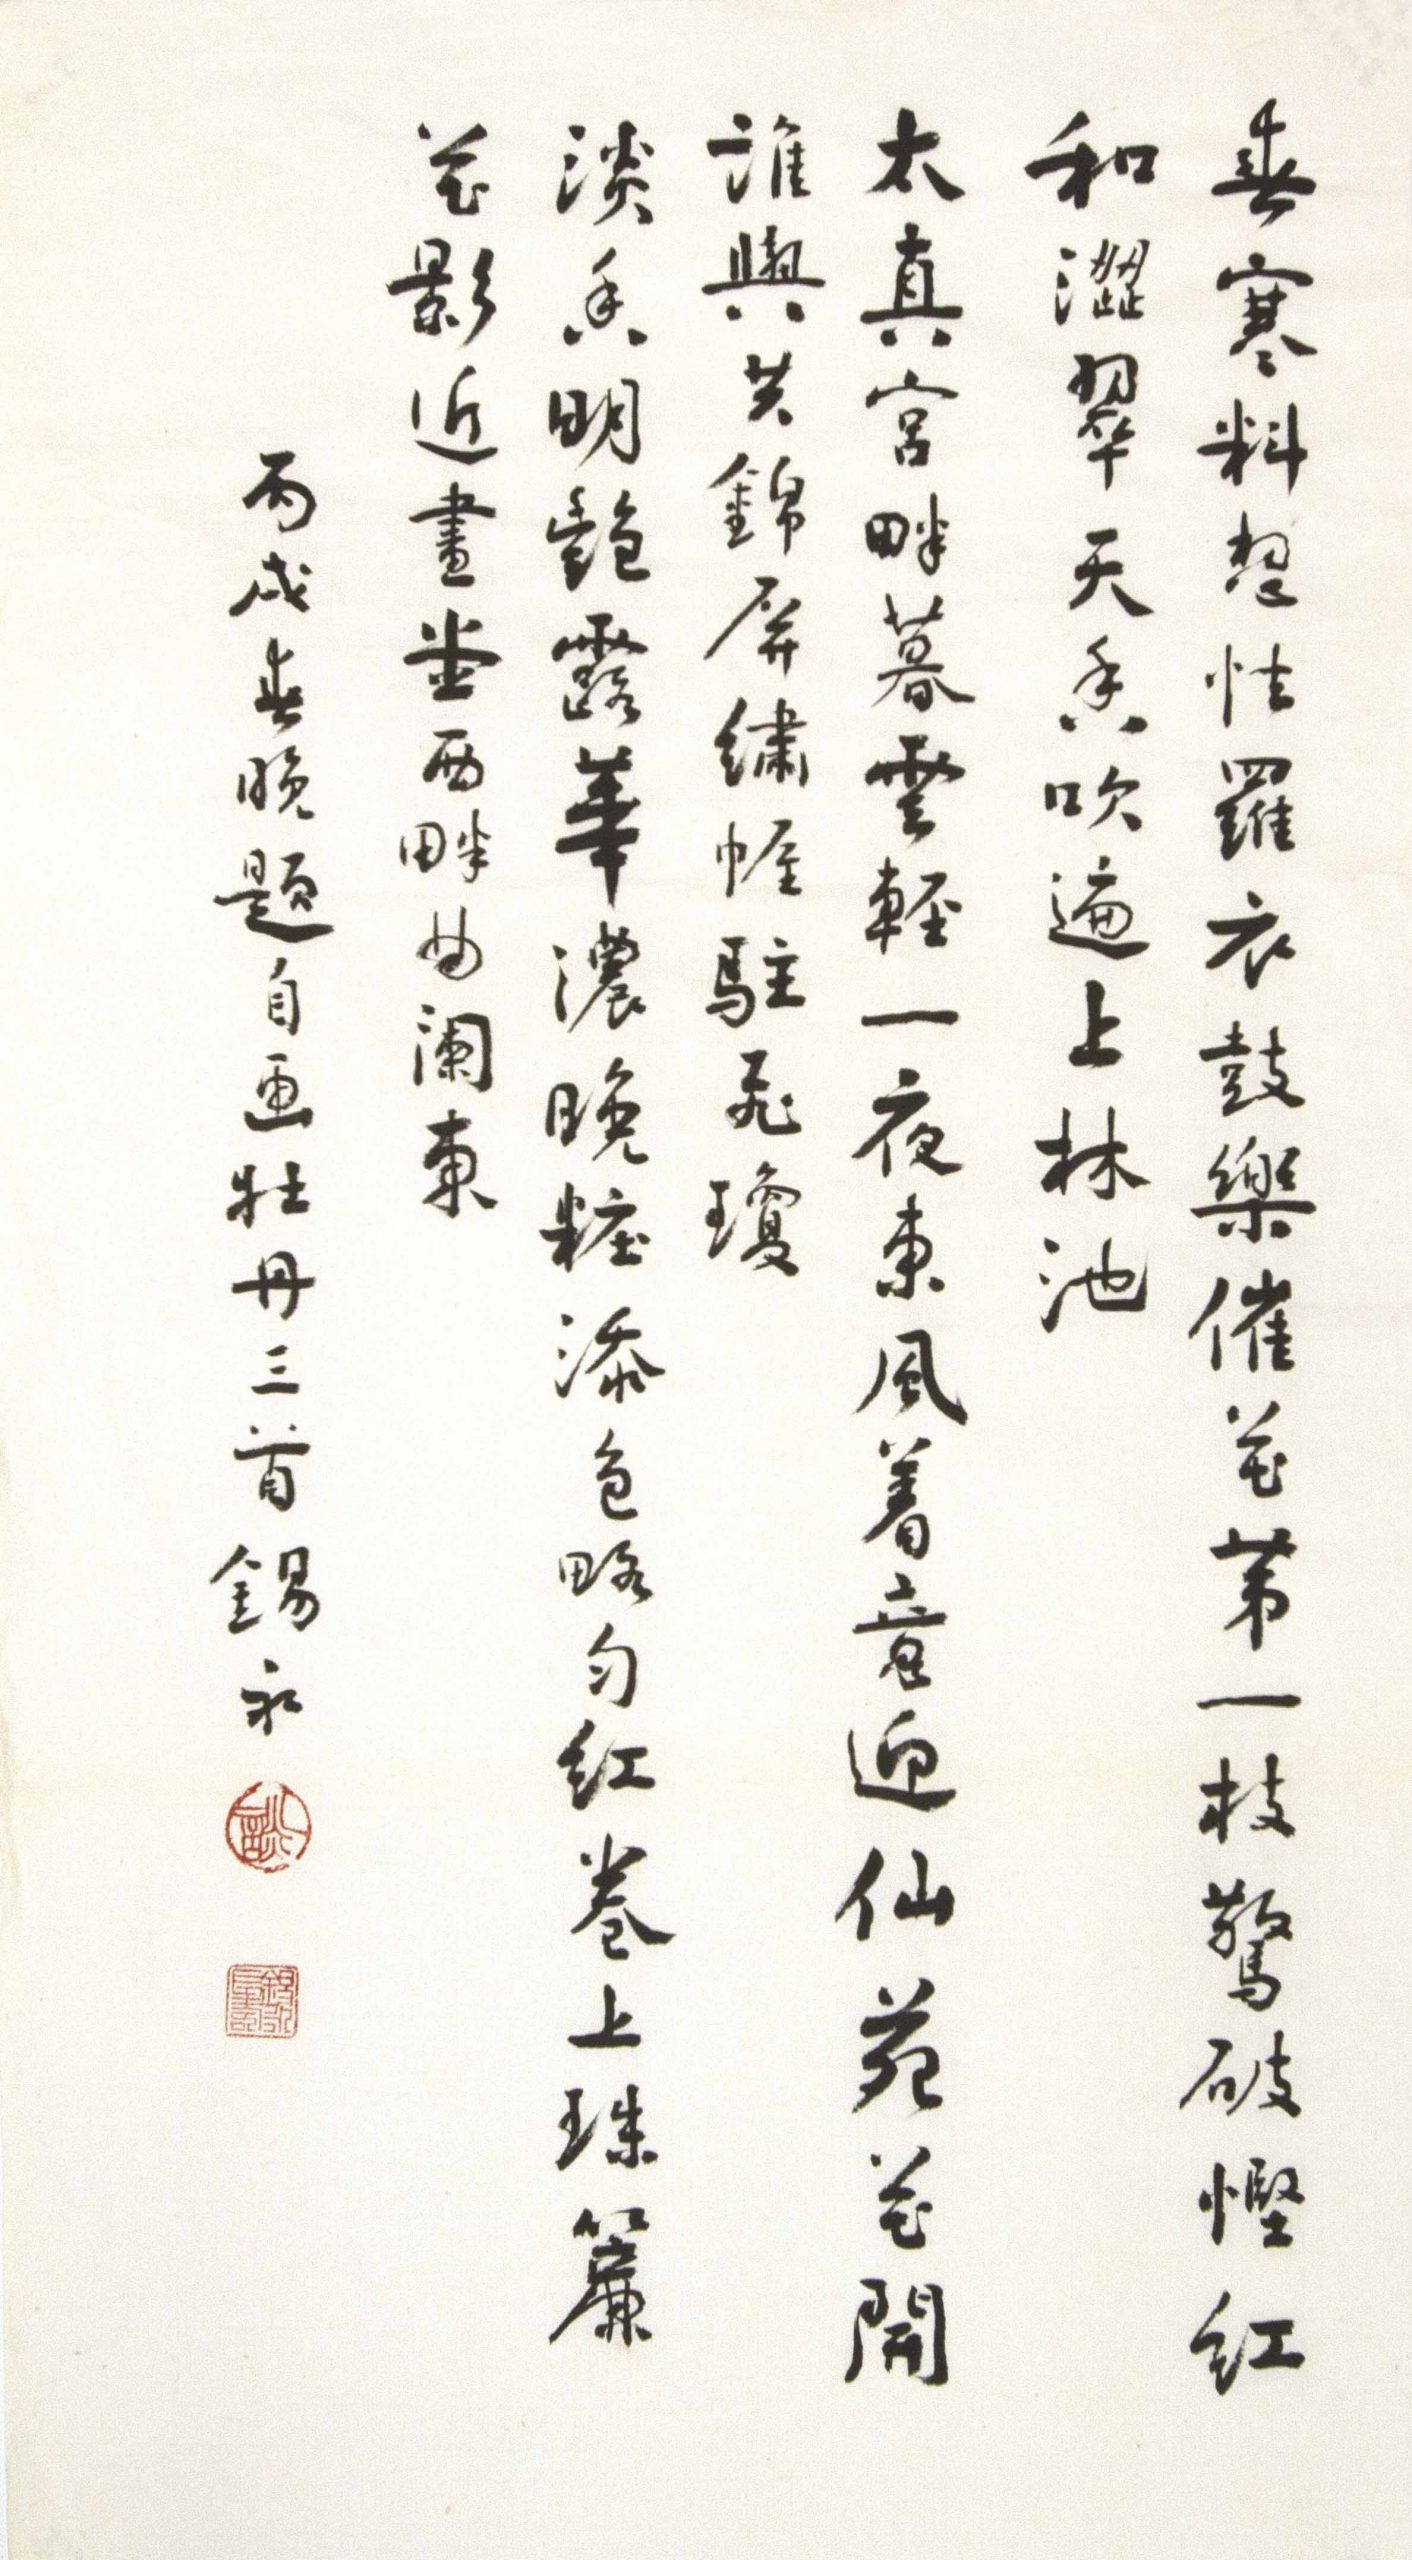 春寒料想怯羅衣鼓樂催花第一枝驚破慳紅
和澀翠天香吹遍上林池
太真宮畔暮雲輕一夜東風着意迎仙苑花開
誰與共錦屏繡幄駐飛瓊
淡香明艷露華濃晚粧添色略勻紅卷上珠簾
花影近畫堂西畔曲闌東
丙戌春晚題自畫牡丹三首錫永